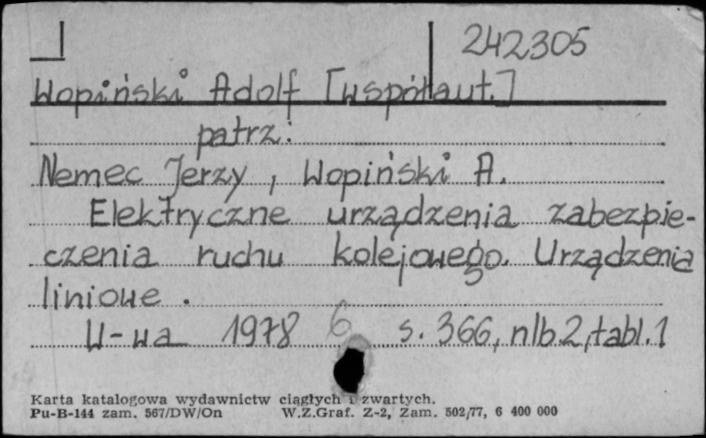 242305
Wopiński Adolf [współaut.]
patrz:
Nemec Jerzy, Wopiński A.
Elektryczne urządzenia zabezpie-
czenia ruchu kolejowego. Urządzenia
liniowe.
W-wa 1978 6 s. 366, nlb. 2, tabl. 1
Karta katalogowa wydawnictw ciągłych i zwartych.
Pu-B-144 zam. 567/DW/On W.Z.Graf. Z-2, Zam. 502/77, 6 400 000